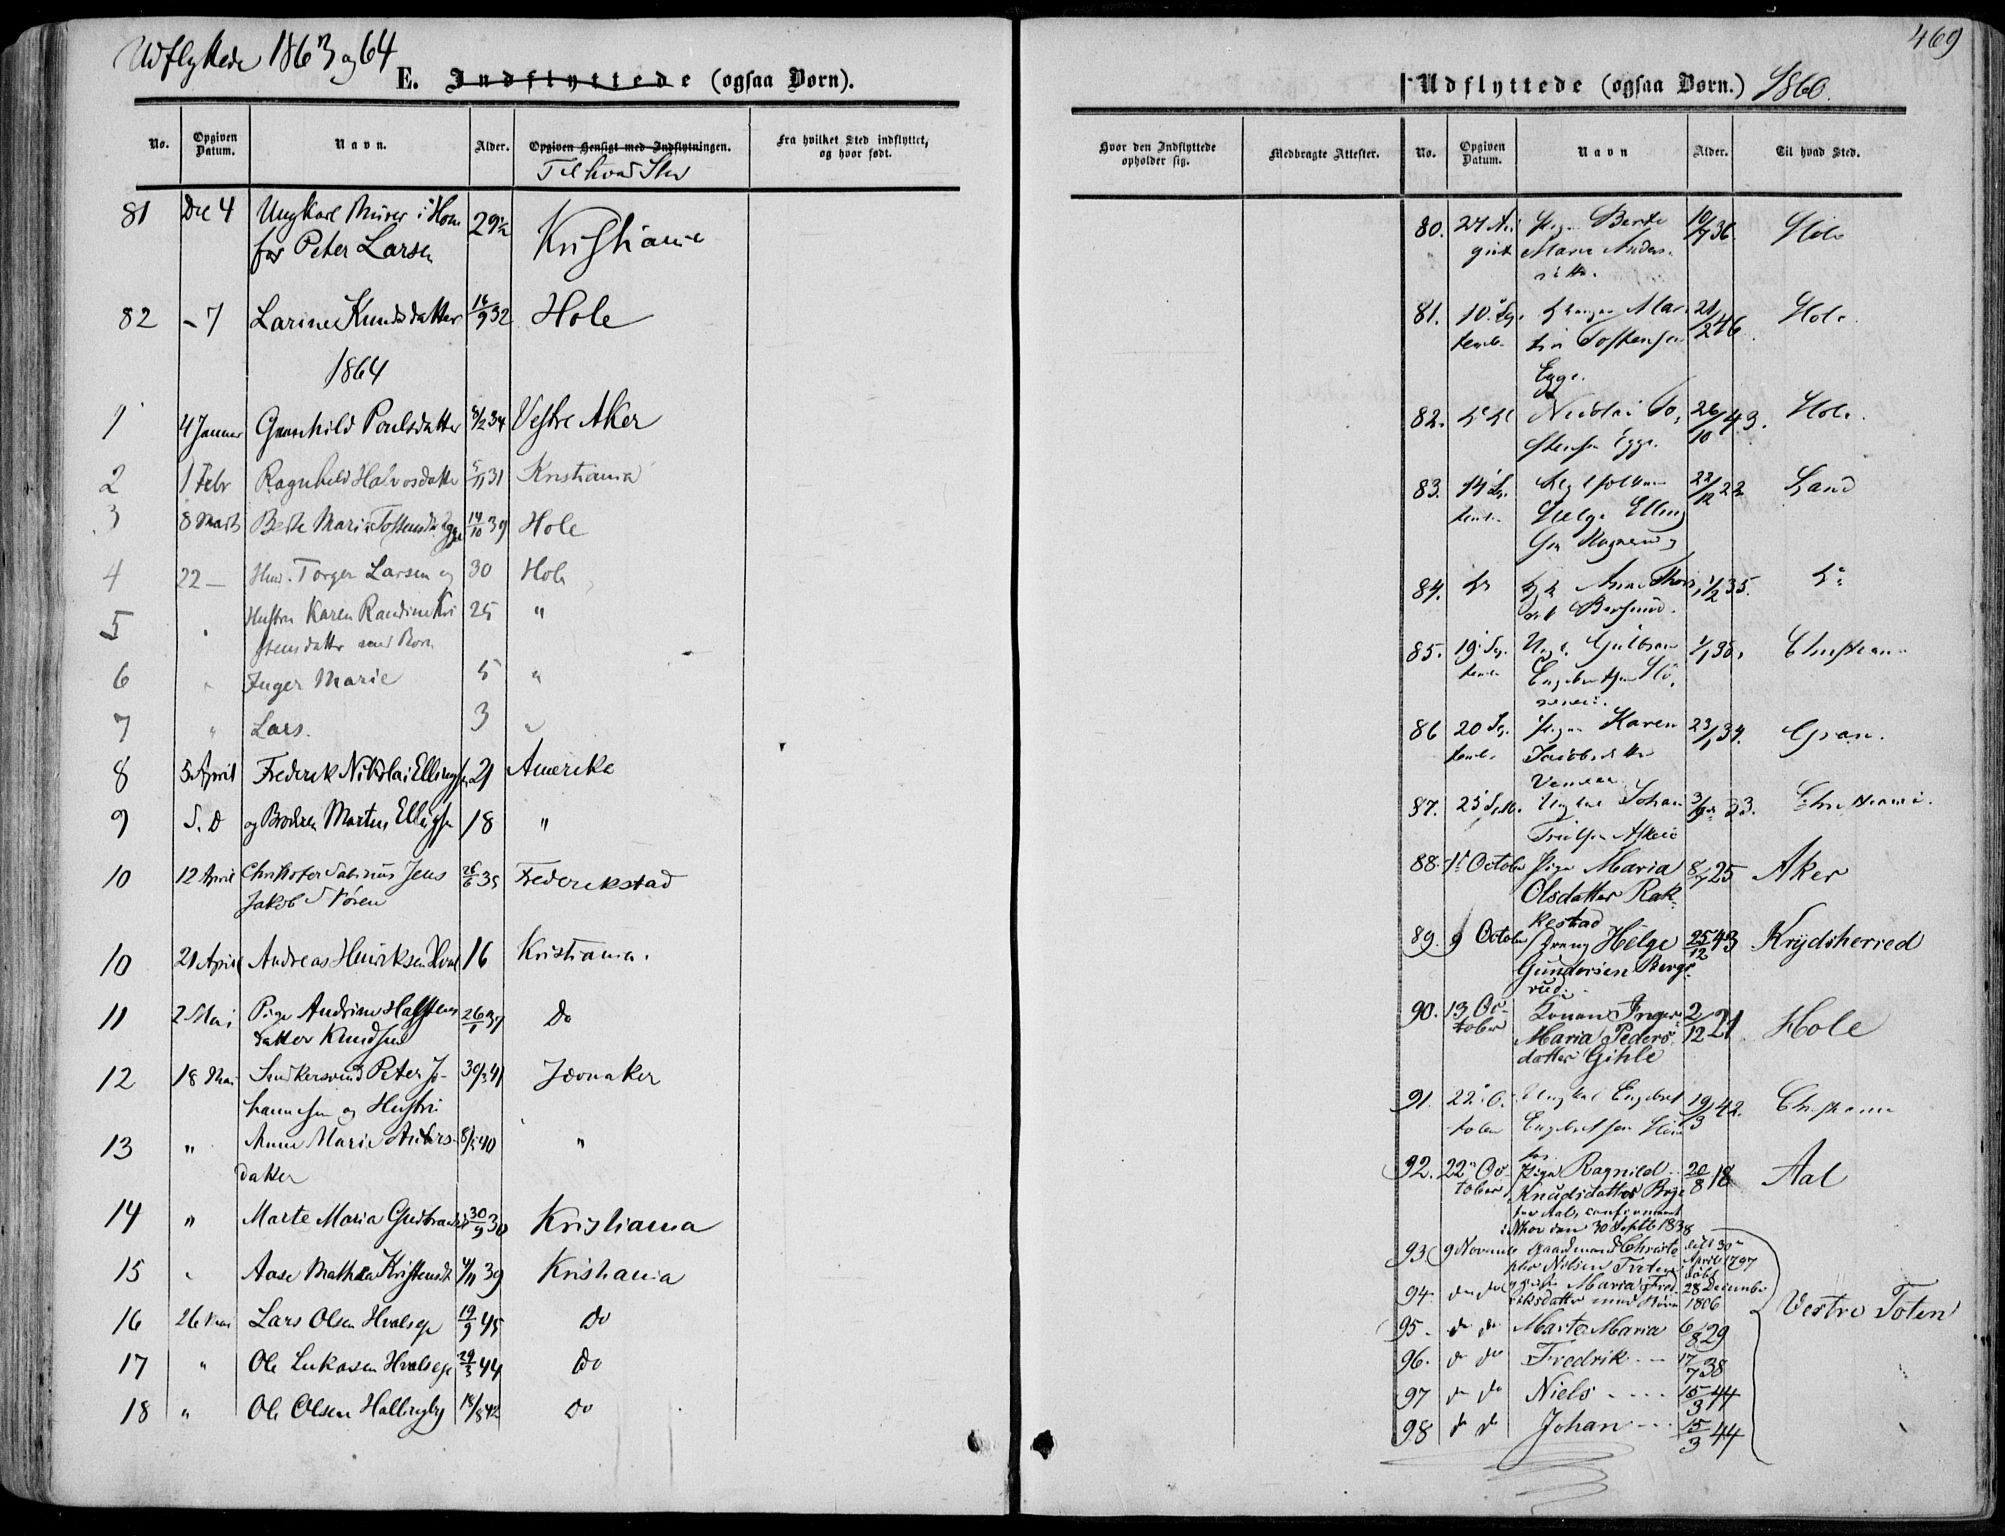 Udflyttede 1863 og 64
E. Indflyttede (ogsaa Børn).
No. Opgiven Datum. Navn. Alder. Opgiven Hensigt med Indflytningen. Fra hvilket Sted indflyttet, og hvor født.
Til hvad Sted
81 Dec 4 Ungkarl Murer i Hone
fos Peter Larsen 29½ Kristiania
82 - 7 Larine Knudsdatter 16/9 32 Hole
1864
1 4 Januar Gunhild Poulsdatter 8/2 34 Vestre Aker
2 1 Febr Ragnhild Halvorsdatter 5/11 31 Kristiania
3 8 Marts Berte Marie Tostensdt. Egge 14/10 39 Hole
4 22 - Hmd. Torger Larsen og 30 Hole
5 " Hustru Karen Randine Kri 25 "
stensdatter med Børn
6 " Inger Marie 5 "
7 " Lars. 3 "
8 5 April Frederik Nikolai Ellingsen 21 Amerika
9 S. D og Broderen Martin Ellingsen 18 "
10 12 April Christofer Sabinus Jens 26/6 35 Frederikstad
Jakob
10 21 April Andreas Henriksen Hval 16 Kristiania.
11 2 Mai Pige Andrine Halstens 26/1 37 Do
datter Knudsen
12 18 Mai Snedkersvend Peter Jo- 30/3 41 Jevnaker
hannesen og Hustru
13 " Anne Marie Anders- 8/5 40 "
datter
14 " Marte Maria Gudbrandsd 30/9 30 Kristiania
15 " Aase Mathea Kristensdt 4/11 39 Kristiania
16 26 Mai Lars Olsen Hvalseye 19/9 45 Do
17 " Ole Lukasen Hvalseye 29/3 44 Do
18 " Ole Olsen Hallingby 18/8 42 Do
469
Udflyttede (ogsaa Børn.) 1860.
Hvor den Indflyttede opholder sig. Medbragte Attester. No. Opgiven Datum. Navn Alder. Til hvad Sted.
80. 27 Au Pigen Berte 10/7 36. Hole
gust Marie Anders-
datter.
81. 10. Sep Drengen Mar 21/2 46. Hole.
temb. tin Tostensen
Egge.
82. do do Nicolai To- 26/10 43. Hole.
stensen Egge.
83. 14 Sep 22/12 22 Land
temb. Helge Elling
sen
84. do Anne Thor 1/2 35. do
85. 19. Sep. Ungk. Gulbran 1/1 36. Christiania
temb.
86 20 Sep. Pigen Karen 23/1 34. Gran.
temb. Jacobsdatter
87. 25 Septb. Ungkarl Johan 33. Christiania.
88. 1. October Pige Maria 8/7 25 Aker
Olsdatter Rak-
kestad
89. 9 October Dreng Helge 25/12 43 Krydsherred
Gundersen Berge-
rud.
90. 13 Oc- Konen Inger 2/12 21 Hole
tober Maria Peders-
datter Gihle
91. 22. Oc- Ungkarl Engebret 19/3 42. Christiania
tober Engebretsen
92. 22. Oc- Pige Ragnild 20/8 18 Aal
tober Knudsdatter
fra Aal, confirmeret
den 30 Septb 1838
93. 9 Novembr Gaardmand Christo døbt 30
pher Nielsen April 1797
94. do do Maria Fred døbt 28 Decembr
riksdatter med Børn 1806 Vestre Toten
95 - do do Marte Maria 6/8 29
96. do do Fredrik - - 17/7 38
97 do do Niels - - - - 15/3 44
98 do do Johan - - - 15/3 44